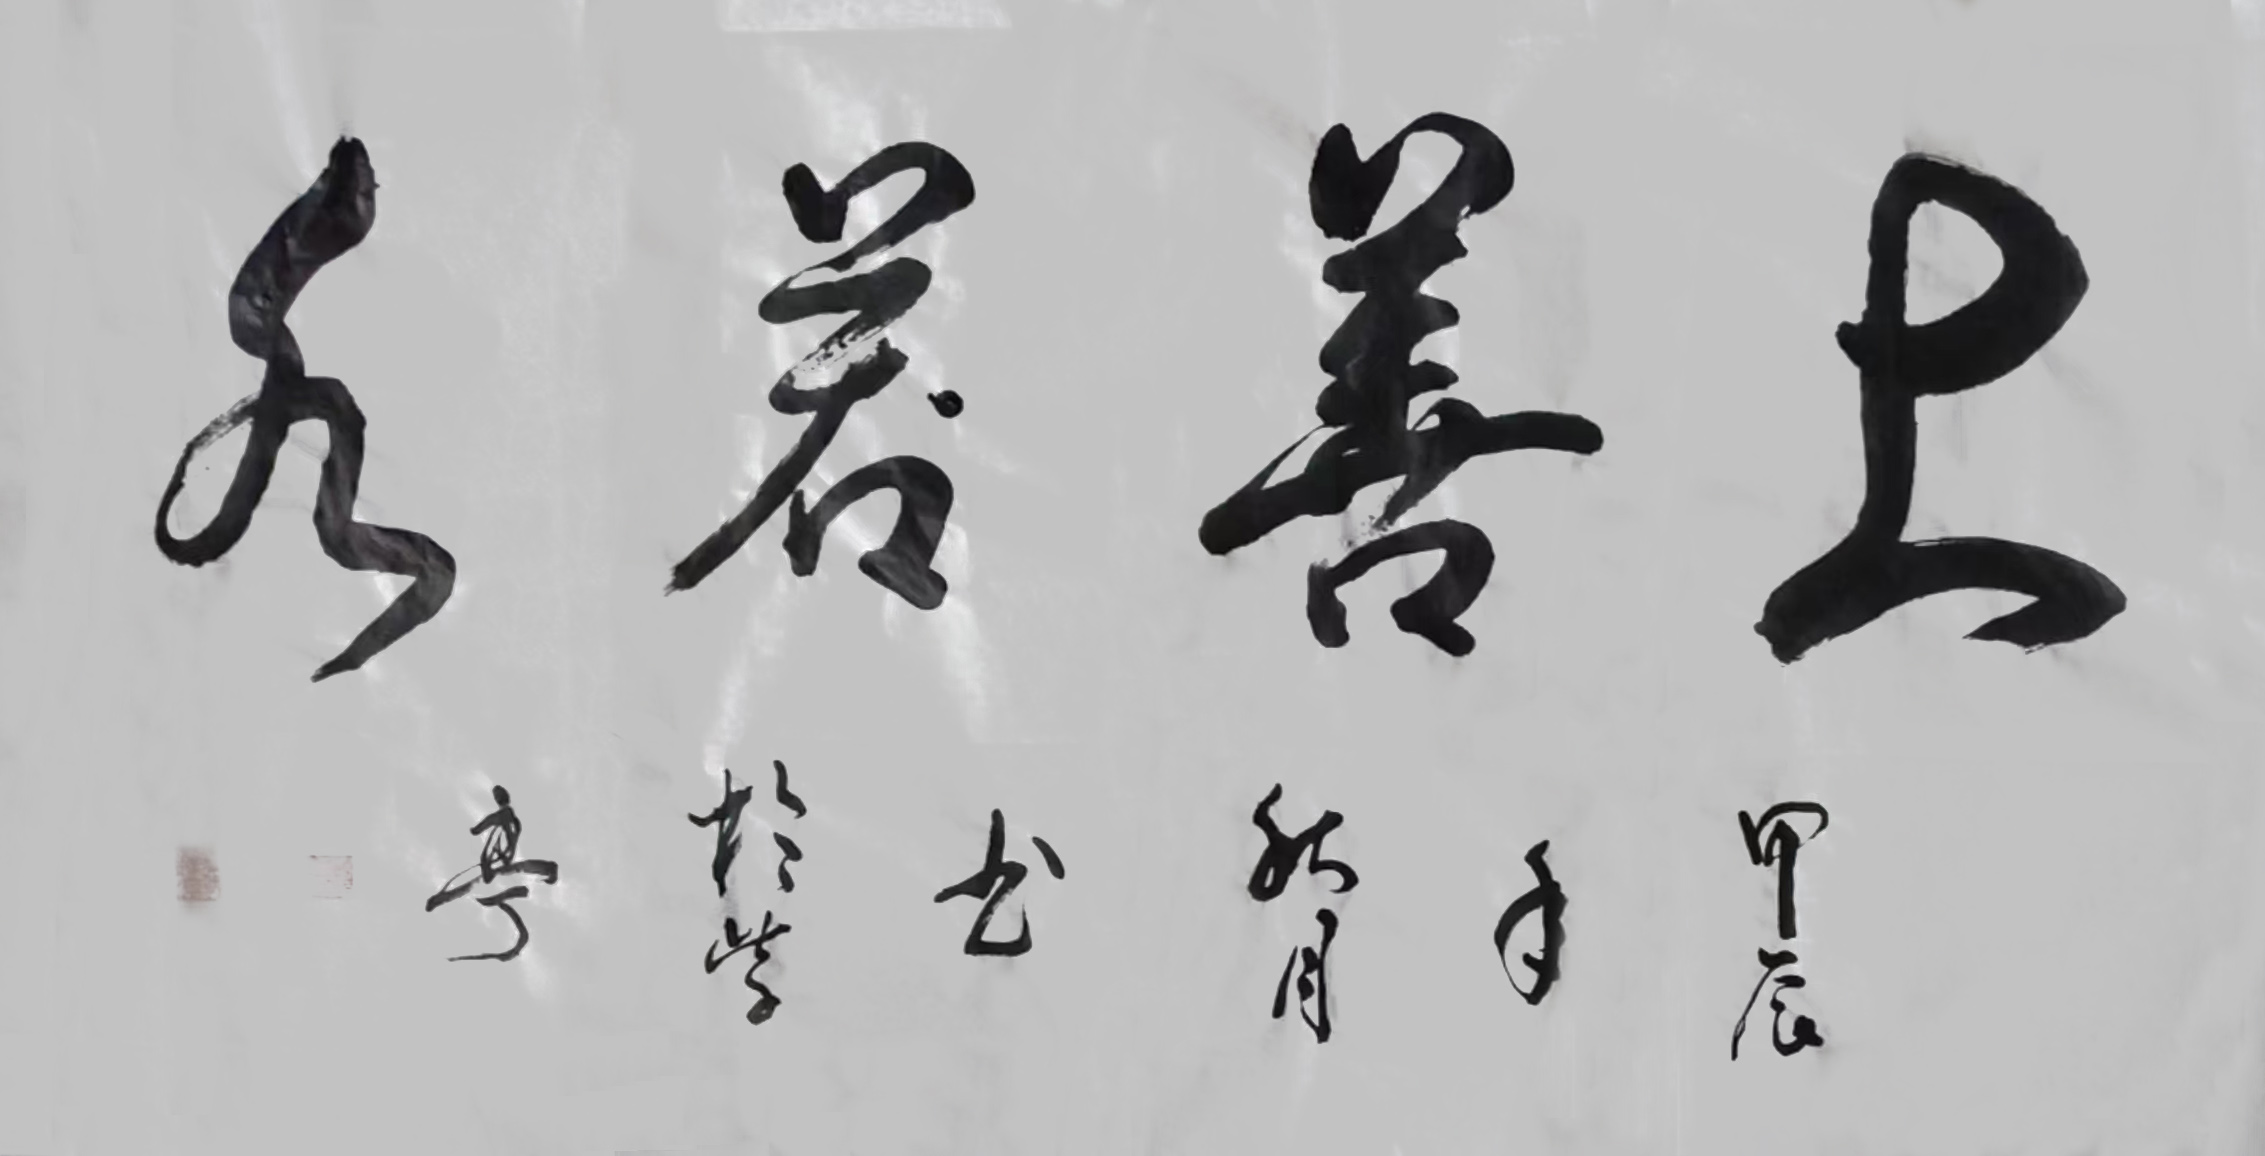 上善若水
甲辰
年
秋月
书
於紫
亭